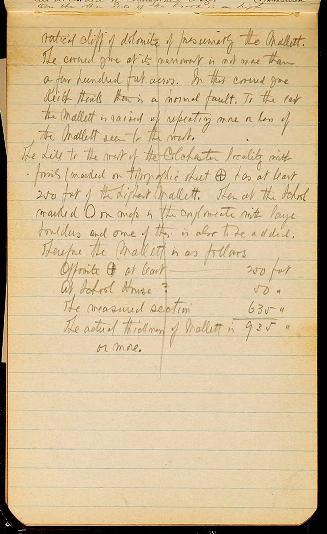 vatied cliff of dolomite of presumably the Mallett.
The covered zone at its narrowest is not more than
a few hundred feet across. In this covered zone
Keith thinks there is a normal fault. To the east
the Mallett is raised up repeating more or less of
the Mallett seen to the west.
The hill to the west of the Colchester locality with
fossils (marked on topographic sheet ⊕) has at least
250 feet of the highest Mallett. Then at the School
marked O on map is the conglomerate with large
boulders and some of this is also to be added.
Therefore the Mallett is as follows
Opposite ⊕ at least 250 feet
At School House ? 50 "
The measured section 635 "
The actual thickness of Mallett is 935 "
or more.